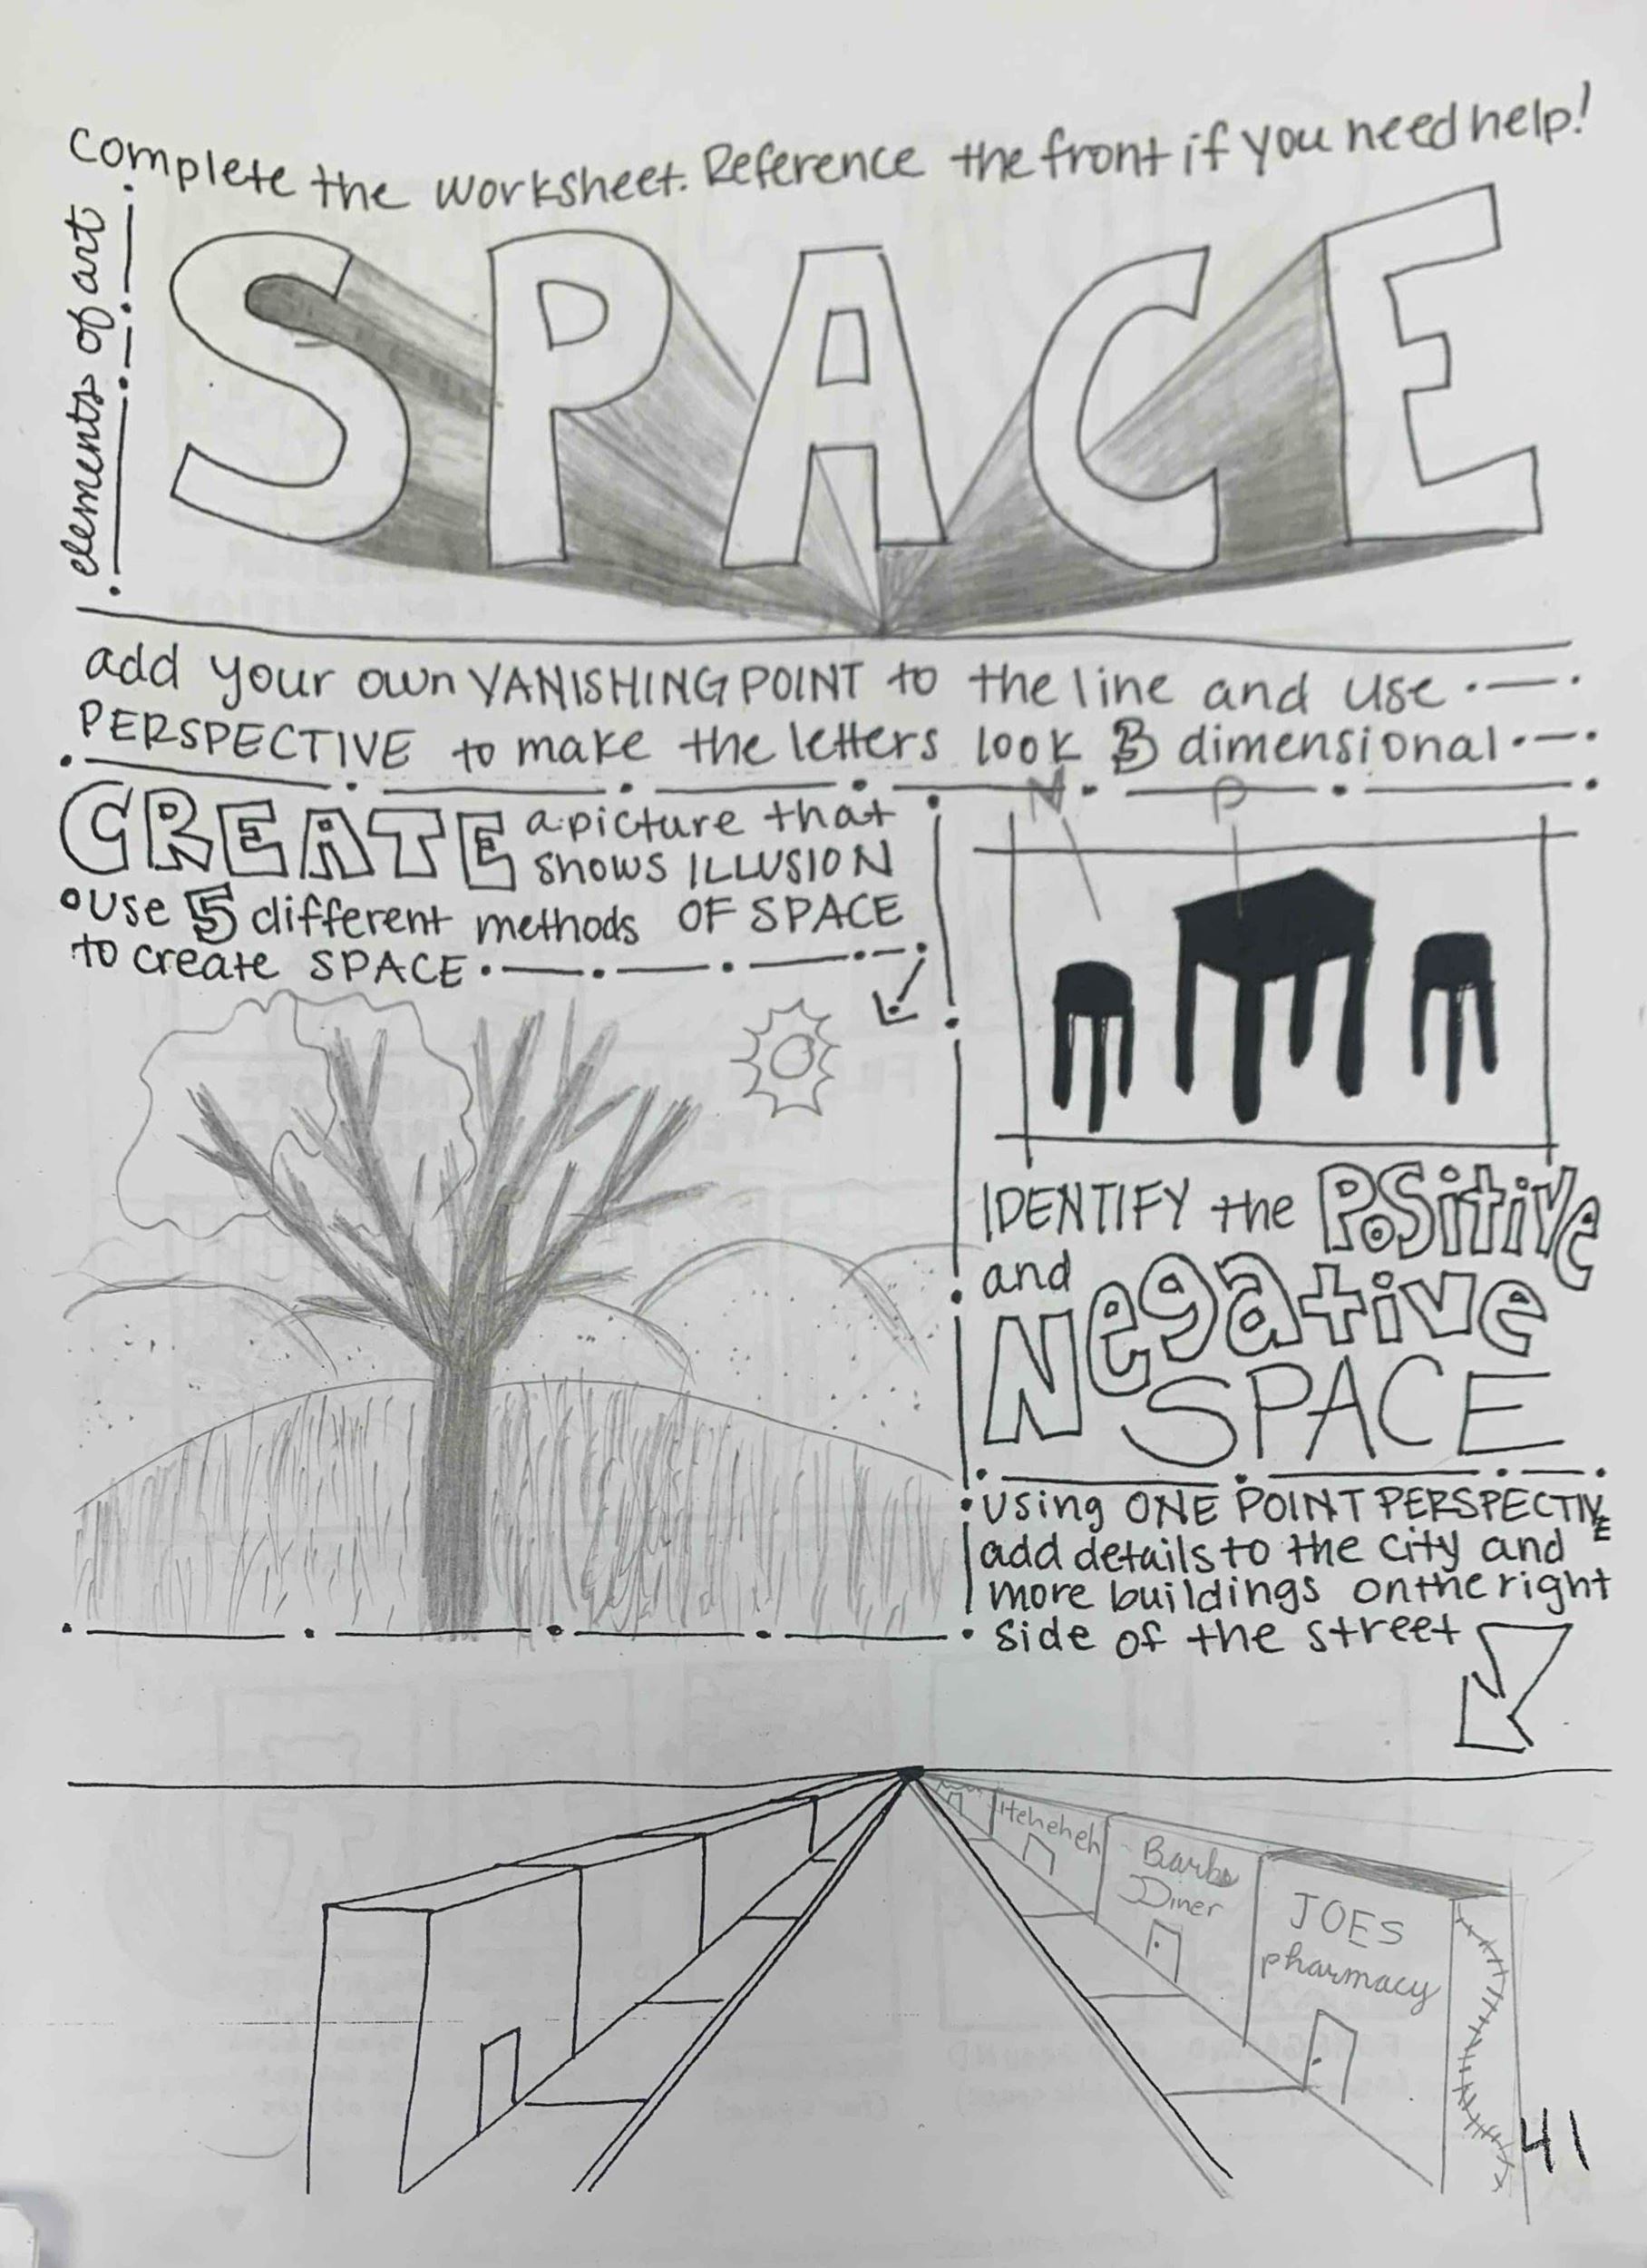 Complete the worksheet. Reference the front if you need help!
elements of art
SPACE
add your own VANISHING POINT to the line and use
PERSPECTIVE to make the letters look 3 dimensional
CREATE a picture that
shows ILLUSION
use 5 different methods OF SPACE
to create SPACE
N P
IDENTIFY the POSitive
and
Negative
SPACE
using ONE POINT PERSPECTIVE
add details to the city and
more buildings on the right
side of the street
Heheheh
Barbs
Diner
JOES
pharmacy
41